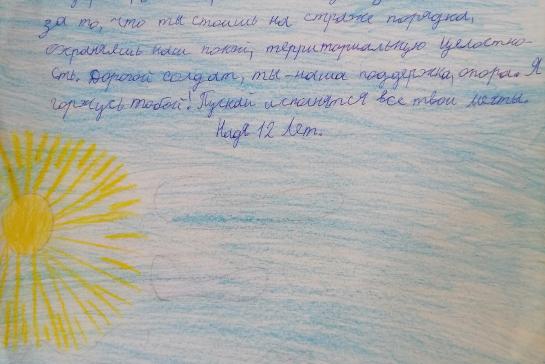 за то, что ты стоишь на страже порядка,
охраняешь наш покой, территориальную целостно-
сть. Дорогой солдат, ты - наша поддержка, опора. Я
горжусь тобой! Пускай исполнятся все твои мечты.
Надя 12 лет.